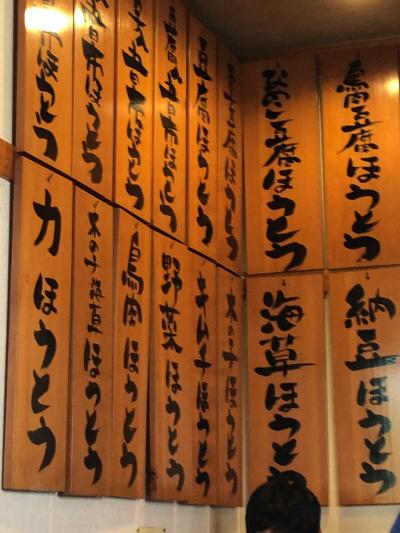 鳥肉豆腐ほうとう
なめこ豆腐ほうとう
豆腐ほうとう
豆腐ほうとう
ほうとう
ほうとう
ほうとう
ほうとう
納豆ほうとう
海草ほうとう
木の子ほうとう
キムチほうとう
野菜ほうとう
鳥肉ほうとう
木の子ほうとう
力ほうとう